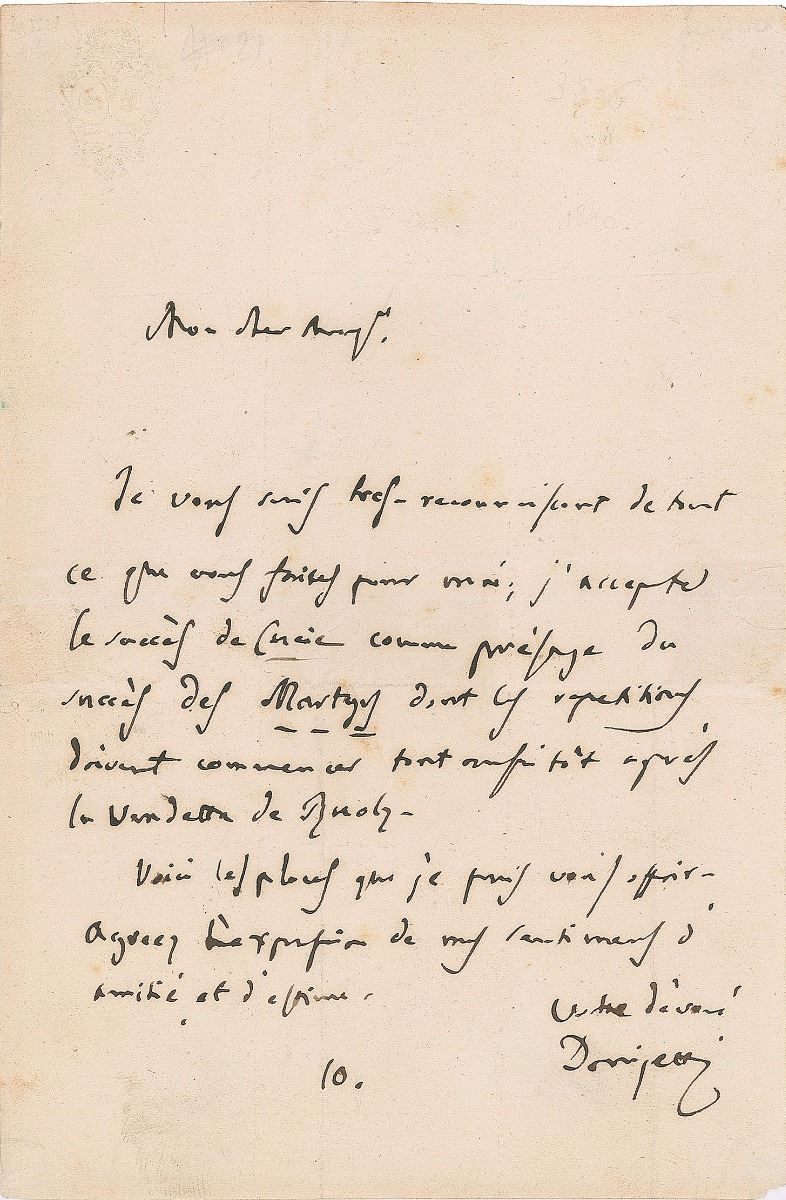 Mon cher
Je vous suis tres-reconnaissant de tout
ce que vous faites pour moi; j'accepte
le succès de Lucie comme présage du
succès des Martyrs dont les repetitions
doivent commencer tout aussitôt après
la Vendetta de Ruolz-
Voici les places que je puis vous offrir-
Agreez l'expression de mes sentimens d'
amitié et d'estime.
votre dévoué
Donizetti
10.
1840.